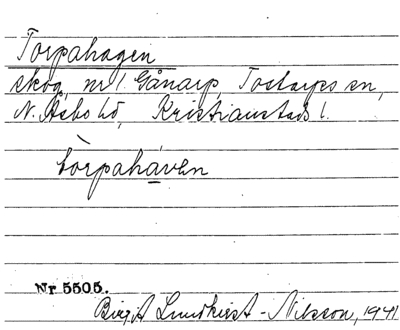 Torpahagen
skog, nr 1 Gånarp, Tostarps sn,
N. Åsbo hd, Kristianstads l.
tòrpahávɘn
Nr 5505.
Birgit Lundkvist-Nilsson, 1941